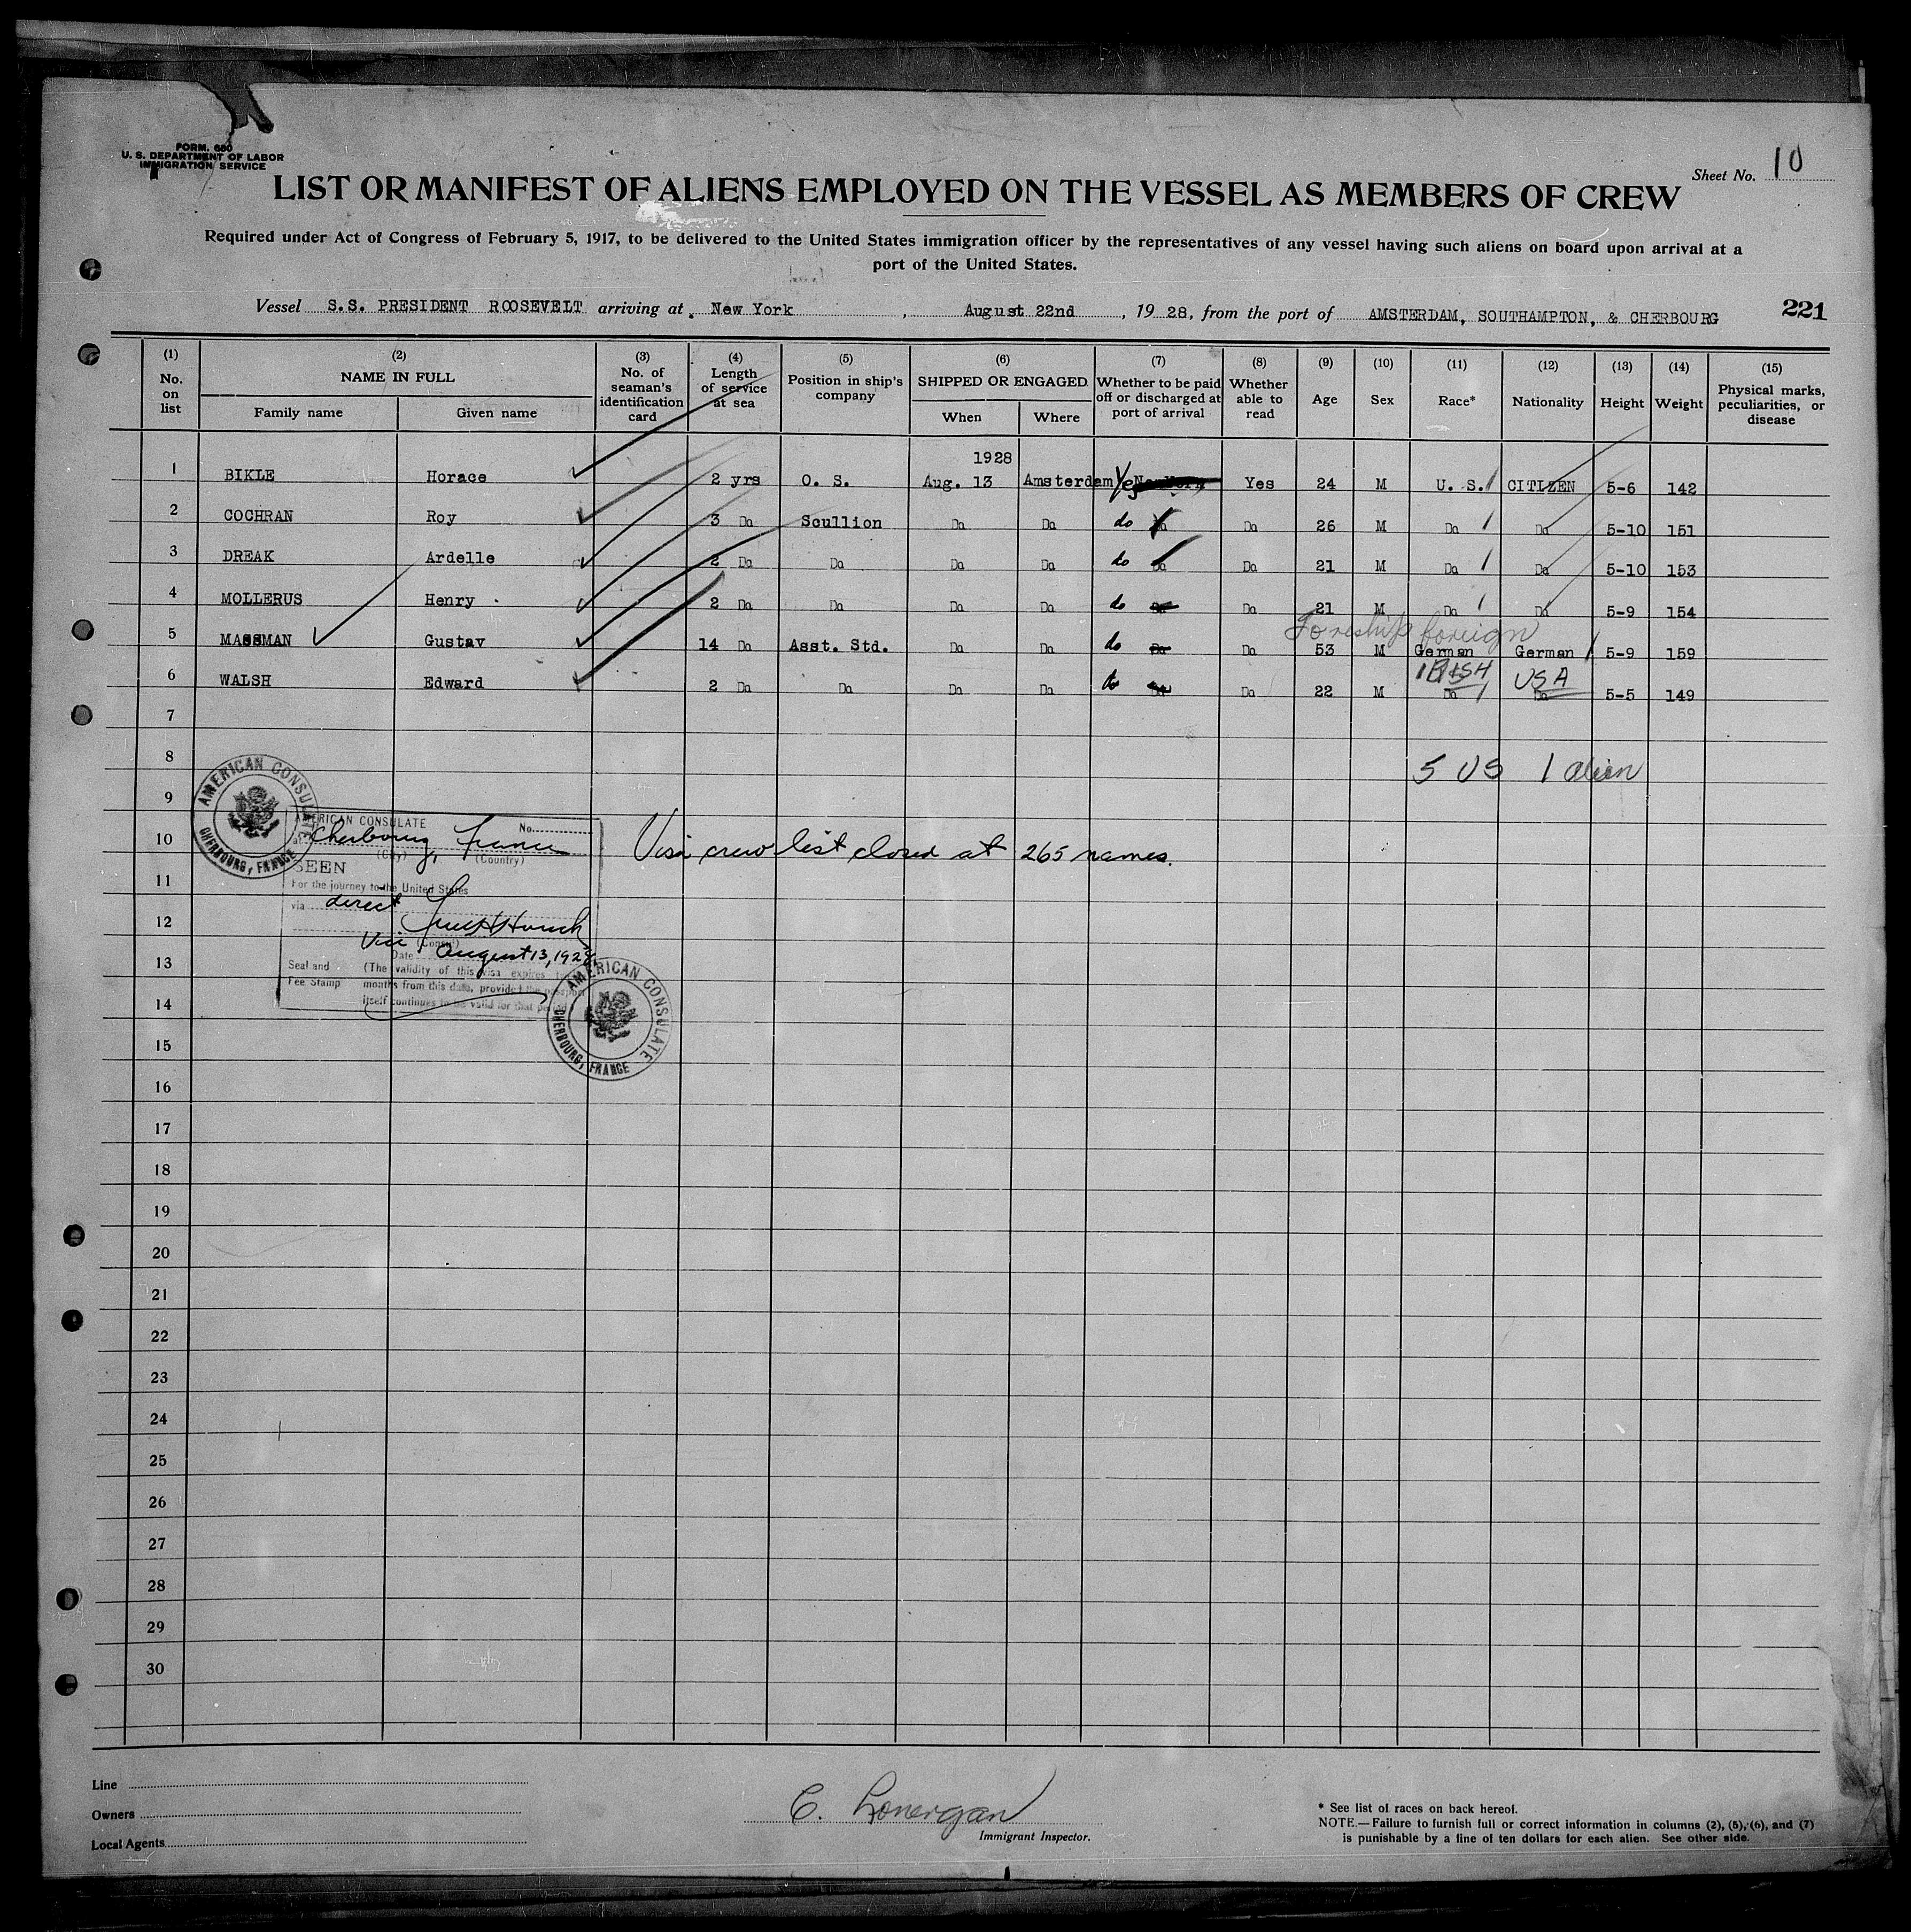 FORM. 680
U. S. DEPARTMENT OF LABOR
IMMIGRATION SERVICE
Sheet No. 10
LIST OR MANIFEST OF ALIENS EMPLOYED ON THE VESSEL AS MEMBERS OF CREW
Required under Act of Congress of February 5, 1917, to be delivered to the United States immigration officer by the representatives of any vessel having such aliens on board upon arrival at a
port of the United States.
Vessel S.S. PRESIDENT ROOSEVELT arriving at New York, August 22nd, 1928, from the port of AMSTERDAM, SOUTHAMPTON, & CHERBOURG 221
(1) No. on list (2) NAME IN FULL Family name Given name (3) No. of seaman's identification card (4) Length of service at sea (5) Position in ship's company (6) SHIPPED OR ENGAGED When Where (7) Whether to be paid off or discharged at port of arrival (8) Whether able to read (9) Age (10) Sex (11) Race* (12) Nationality (13) Height (14) Weight (15) Physical marks, peculiarities, or disease
1928
1 BIKLE Horace 2 yrs O. S. Aug. 13 Amsterdam Yes New York Yes 24 M U. S. CITIZEN 5-6 142
2 COCHRAN Roy 3 Do Scullion Do Do do Do Do 26 M Do Do 5-10 151
3 DREAK Ardelle 2 Do Do Do Do do Do Do 21 M Do Do 5-10 153
4 MOLLERUS Henry 2 Do Do Do Do do Do Do 21 M Do Do 5-9 154
foreign
5 MASSMAN Gustav 14 Do Asst. Std. Do Do do Do Do 53 M German German 5-9 159
IRISH USA
6 WALSH Edward 2 Do Do Do Do do Do Do 22 M Do Do 5-5 149
7
8 5 US 1 alien
9
10 Visa crew list closed at 265 names.
11
12
13
14
15
16
17
18
19
20
21
22
23
24
25
26
27
28
29
30
AMERICAN CONSULATE
CHERBOURG, FRANCE
AMERICAN CONSULATE No.
at Cherbourg, France
(City) (Country)
SEEN
For the journey to the United States
via direct
Vice (Consul)
Date August 13, 1928
Seal and Fee Stamp
(The validity of this visa expires
months from this date, provided the passport
itself continues to be valid for that period
AMERICAN CONSULATE
CHERBOURG, FRANCE
Line
Owners
Local Agents
C. Lonergan
Immigrant Inspector.
* See list of races on back hereof.
NOTE.—Failure to furnish full or correct information in columns (2), (5), (6), and (7)
is punishable by a fine of ten dollars for each alien. See other side.